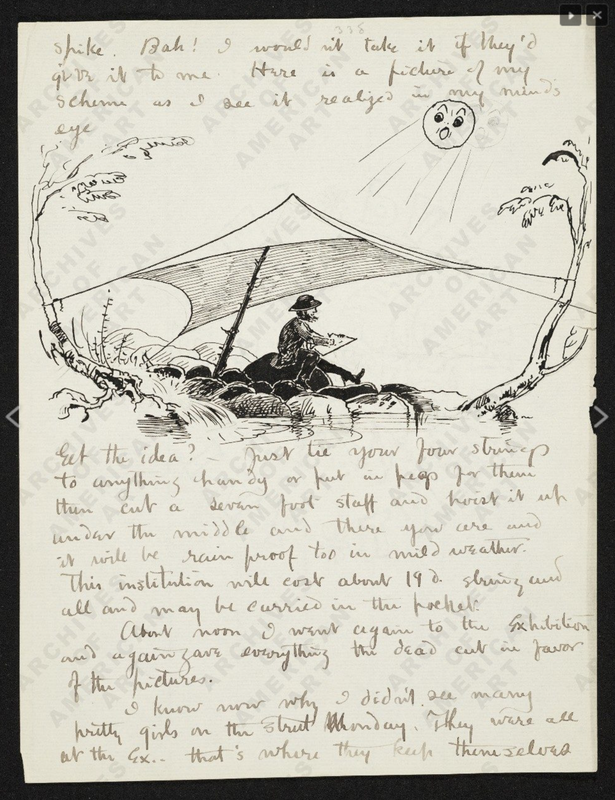 spike. Bah! I would n't take it if they'd
give it to me. Here is a picture of my
scheme as I see it realized in my mind's
eye
Get the idea? – Just tie your four strings
to anything handy or put in pegs for them
then cut a seven foot staff and hoist it up
under the middle and there you are and
it will be rain proof too in mild weather.
This institution will cost about 19 d. string and
all and may be carried in the pocket.
About noon I went again to the Exhibition
and again gave everything the dead cut in favor
of the pictures.
I know now why I didn't see many
pretty girls on the street Monday. They were all
at the Ex.– that's where they keep themselves